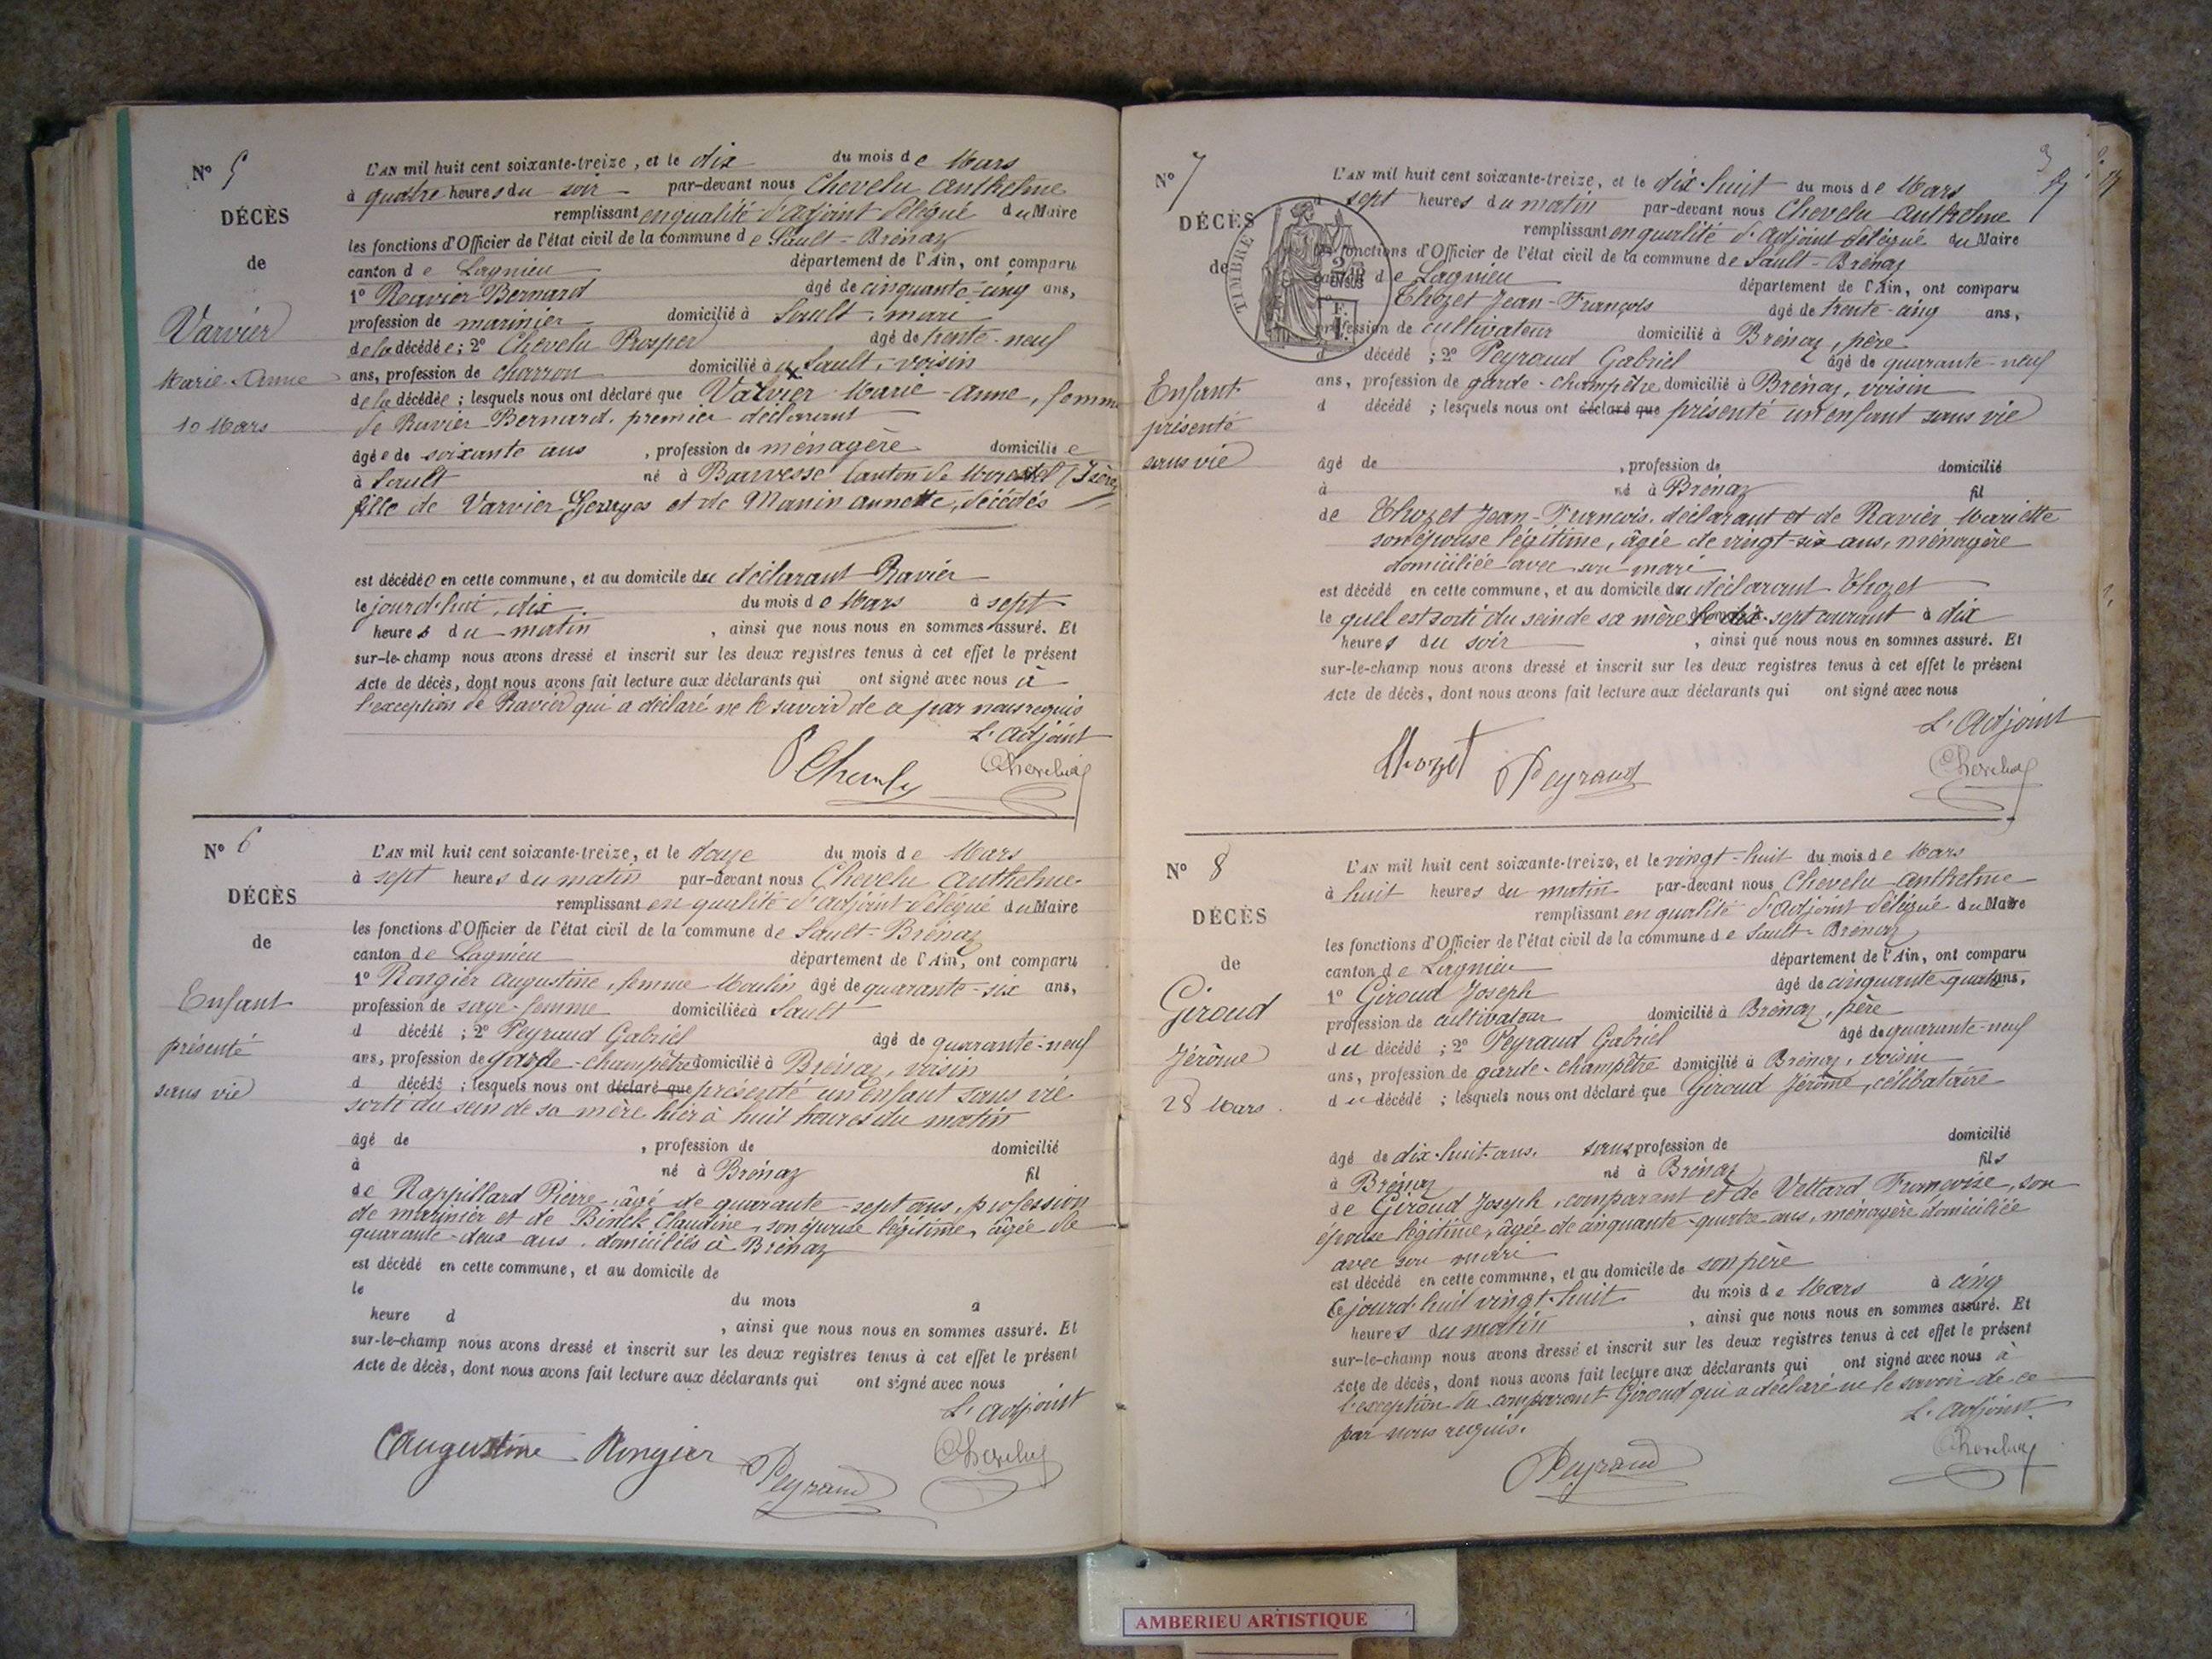 N° 5
DÉCÈS
de
Varvier
Marie-Anne
10 Mars
L'AN mil huit cent soixante-treize, et le dix du mois de Mars
à quatre heures du soir par-devant nous Chevelu Anthelme
remplissant en qualité d'adjoint délégué du Maire
les fonctions d'Officier de l'état civil de la commune de Sault-Brénaz
canton de Lagnieu département de l'Ain, ont comparu
1° Ravier Bernard âgé de cinquante-cinq ans,
profession de marinier domicilié à Sault, mari
de la décédée; 2° Chevelu Prosper âgé de trente-neuf
ans, profession de charron domicilié à Sault, voisin
de la décédée; lesquels nous ont déclaré que Varvier Marie-Anne, femme
de Ravier Bernard, premier déclarant
âgée de soixante ans, profession de ménagère domiciliée
à Sault né à Bouvesse canton de Morestel (Isère)
fille de Varvier Georges et de Manin Annette, décédés
est décédée en cette commune, et au domicile du déclarant Ravier
le jourd'hui, dix du mois de Mars à sept
heures du matin, ainsi que nous nous en sommes assuré. Et
sur-le-champ nous avons dressé et inscrit sur les deux registres tenus à cet effet le présent
Acte de décès, dont nous avons fait lecture aux déclarants qui ont signé avec nous à
l'exception de Ravier qui a déclaré ne le savoir de ce par nous requis
L'adjoint
P Chevelu
Chevelu
N° 6
DÉCÈS
de
Enfant
présenté
sans vie
L'AN mil huit cent soixante-treize, et le douze du mois de Mars
à sept heures du matin par-devant nous Chevelu Anthelme
remplissant en qualité d'adjoint délégué du Maire
les fonctions d'Officier de l'état civil de la commune de Sault-Brénaz
canton de Lagnieu département de l'Ain, ont comparu
1° Rongier Augustine, femme Moulin âgé de quarante-six ans,
profession de sage-femme domiciliée à Sault
d décédé; 2° Peyraud Gabriel âgé de quarante-neuf
ans, profession de garde-champêtre domicilié à Brénaz, voisin
d décédé; lesquels nous ont déclaré que présenté un enfant sans vie
sorti du sein de sa mère hier à huit heures du matin
âgé de , profession de domicilié
à né à Brénaz fil
de Rappillard Pierre, âgé de quarante-sept ans, profession
de marinier et de Claudine, son épouse légitime, âgée de
quarante-deux ans, domiciliés à Brénaz
est décédé en cette commune, et au domicile de
le du mois à
heure d , ainsi que nous nous en sommes assuré. Et
sur-le-champ nous avons dressé et inscrit sur les deux registres tenus à cet effet le présent
Acte de décès, dont nous avons fait lecture aux déclarants qui ont signé avec nous
L'adjoint
Augustine Rongier
Peyraud
Chevelu
N° 7
DÉCÈS
de
Enfant
présenté
sans vie
TIMBRE
L'AN mil huit cent soixante-treize, et le dix-huit du mois de Mars
à sept heures du matin par-devant nous Chevelu Anthelme
remplissant en qualité d'adjoint délégué du Maire
les fonctions d'Officier de l'état civil de la commune de Sault-Brénaz
canton de Lagnieu département de l'Ain, ont comparu
1° Thozet Jean-François âgé de trente-cinq ans,
profession de cultivateur domicilié à Brénaz, père
d décédé; 2° Peyraud Gabriel âgé de quarante-neuf
ans, profession de garde-champêtre domicilié à Brénaz, voisin
d décédé; lesquels nous ont déclaré que présenté un enfant sans vie
âgé de , profession de domicilié
à né à Brénaz fil
de Thozet Jean-François, déclarant et de Ravier Mariette
son épouse légitime, âgée de vingt-six ans, ménagère
domiciliée avec son mari
est décédé en cette commune, et au domicile du déclarant Thozet
lequel est sorti du sein de sa mère le dix-sept courant à dix
heures du soir, ainsi que nous nous en sommes assuré. Et
sur-le-champ nous avons dressé et inscrit sur les deux registres tenus à cet effet le présent
Acte de décès, dont nous avons fait lecture aux déclarants qui ont signé avec nous
L'Adjoint
Thozet
Peyraud
Chevelu
N° 8
DÉCÈS
de
Giroud
Jérôme
28 Mars
L'AN mil huit cent soixante-treize, et le vingt-huit du mois de Mars
à huit heures du matin par-devant nous Chevelu Anthelme
remplissant en qualité d'adjoint délégué du Maire
les fonctions d'Officier de l'état civil de la commune de Sault-Brénaz
canton de Lagnieu département de l'Ain, ont comparu
1° Giroud Joseph âgé de cinquante-quatre ans,
profession de cultivateur domicilié à Brénaz, père
du décédé; 2° Peyraud Gabriel âgé de quarante-neuf
ans, profession de garde-champêtre domicilié à Brénaz, voisin
du décédé; lesquels nous ont déclaré que Giroud Jérôme, célibataire
âgé de dix-huit ans, sans profession de domicilié
à Brénaz né à Brénaz fils
de Giroud Joseph, comparant et de Vettard Françoise, son
épouse légitime, âgée de cinquante-quatre ans, ménagère domiciliée
avec son mari
est décédé en cette commune, et au domicile de son père
le jourd'huit vingt-huit du mois de Mars à cinq
heures du matin, ainsi que nous nous en sommes assuré. Et
sur-le-champ nous avons dressé et inscrit sur les deux registres tenus à cet effet le présent
Acte de décès, dont nous avons fait lecture aux déclarants qui ont signé avec nous à
l'exception du comparant Giroud qui a déclaré ne le savoir de ce
par nous requis.
L'adjoint
Peyraud
Chevelu
AMBERIEU ARTISTIQUE